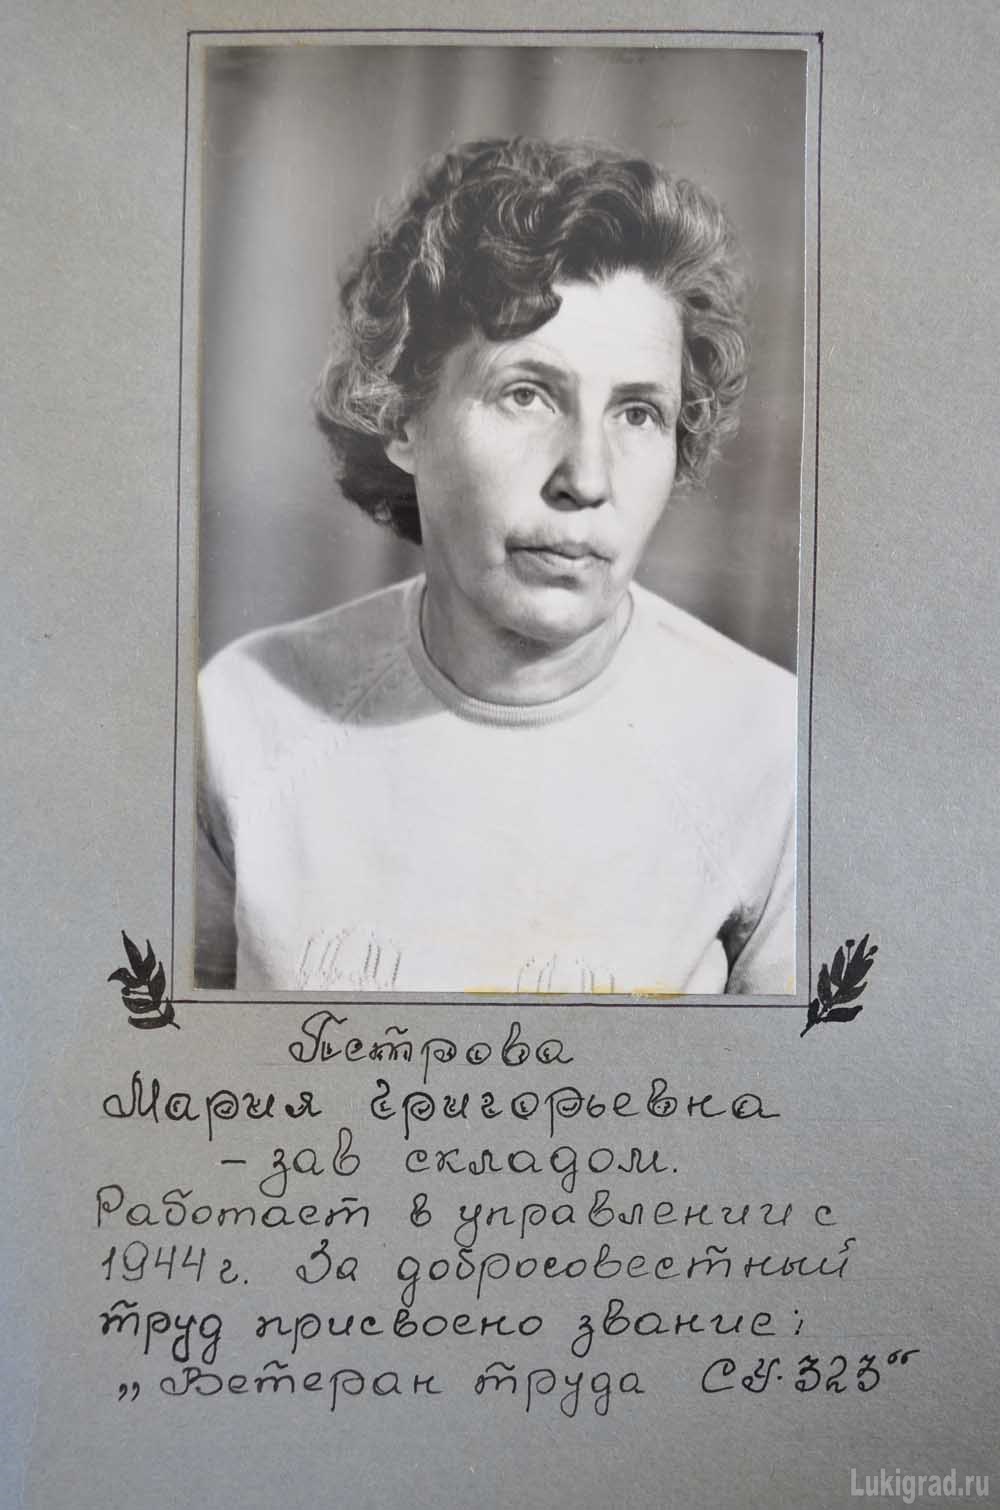 Петрова
Мария Григорьевна
– зав складом.
Работает в управлении с
1944 г. За добросовестный
труд присвоено звание:
„Ветеран труда СУ-323“
Lukigrad.ru